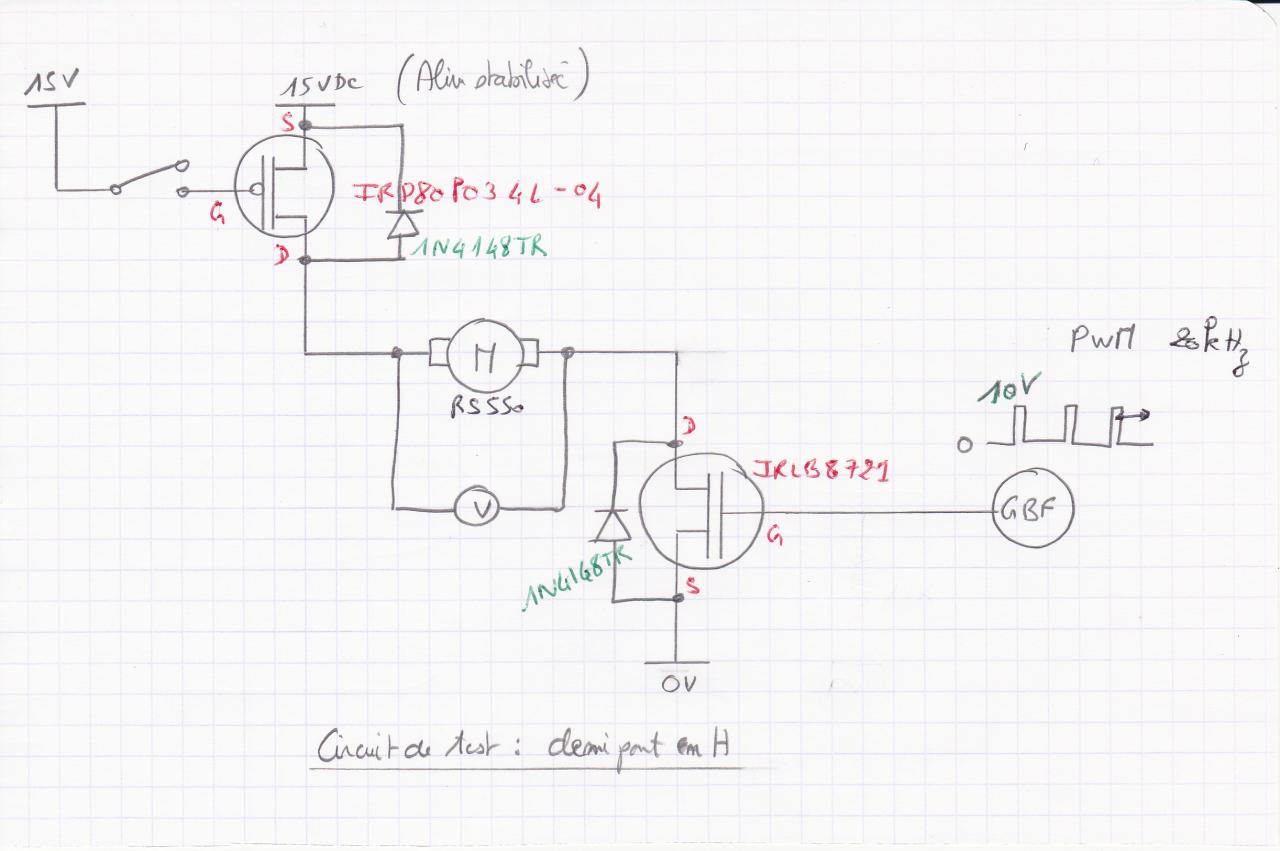 15V
15VDC (Alim stabilisé)
S
IRD80P03 4L-04
G
D
1N4148TR
M
RS550
V
PWM 20kHz
10V
0
D
IRLB8721
GBF
G
1N4148TR
S
0V
Circuit de test : demi pont en H